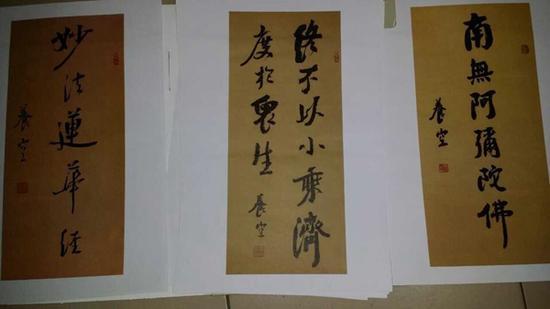 妙法蓮華经
養空
終不以小乘濟
度於眾生
養空
南無阿彌陀佛
養空